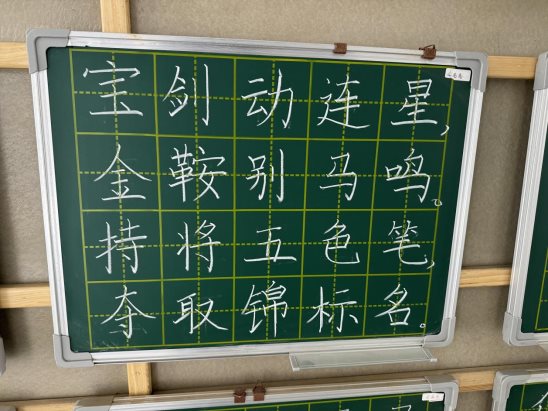 宝剑动连星,
金鞍别马鸣。
持将五色笔,
夺取锦标名。